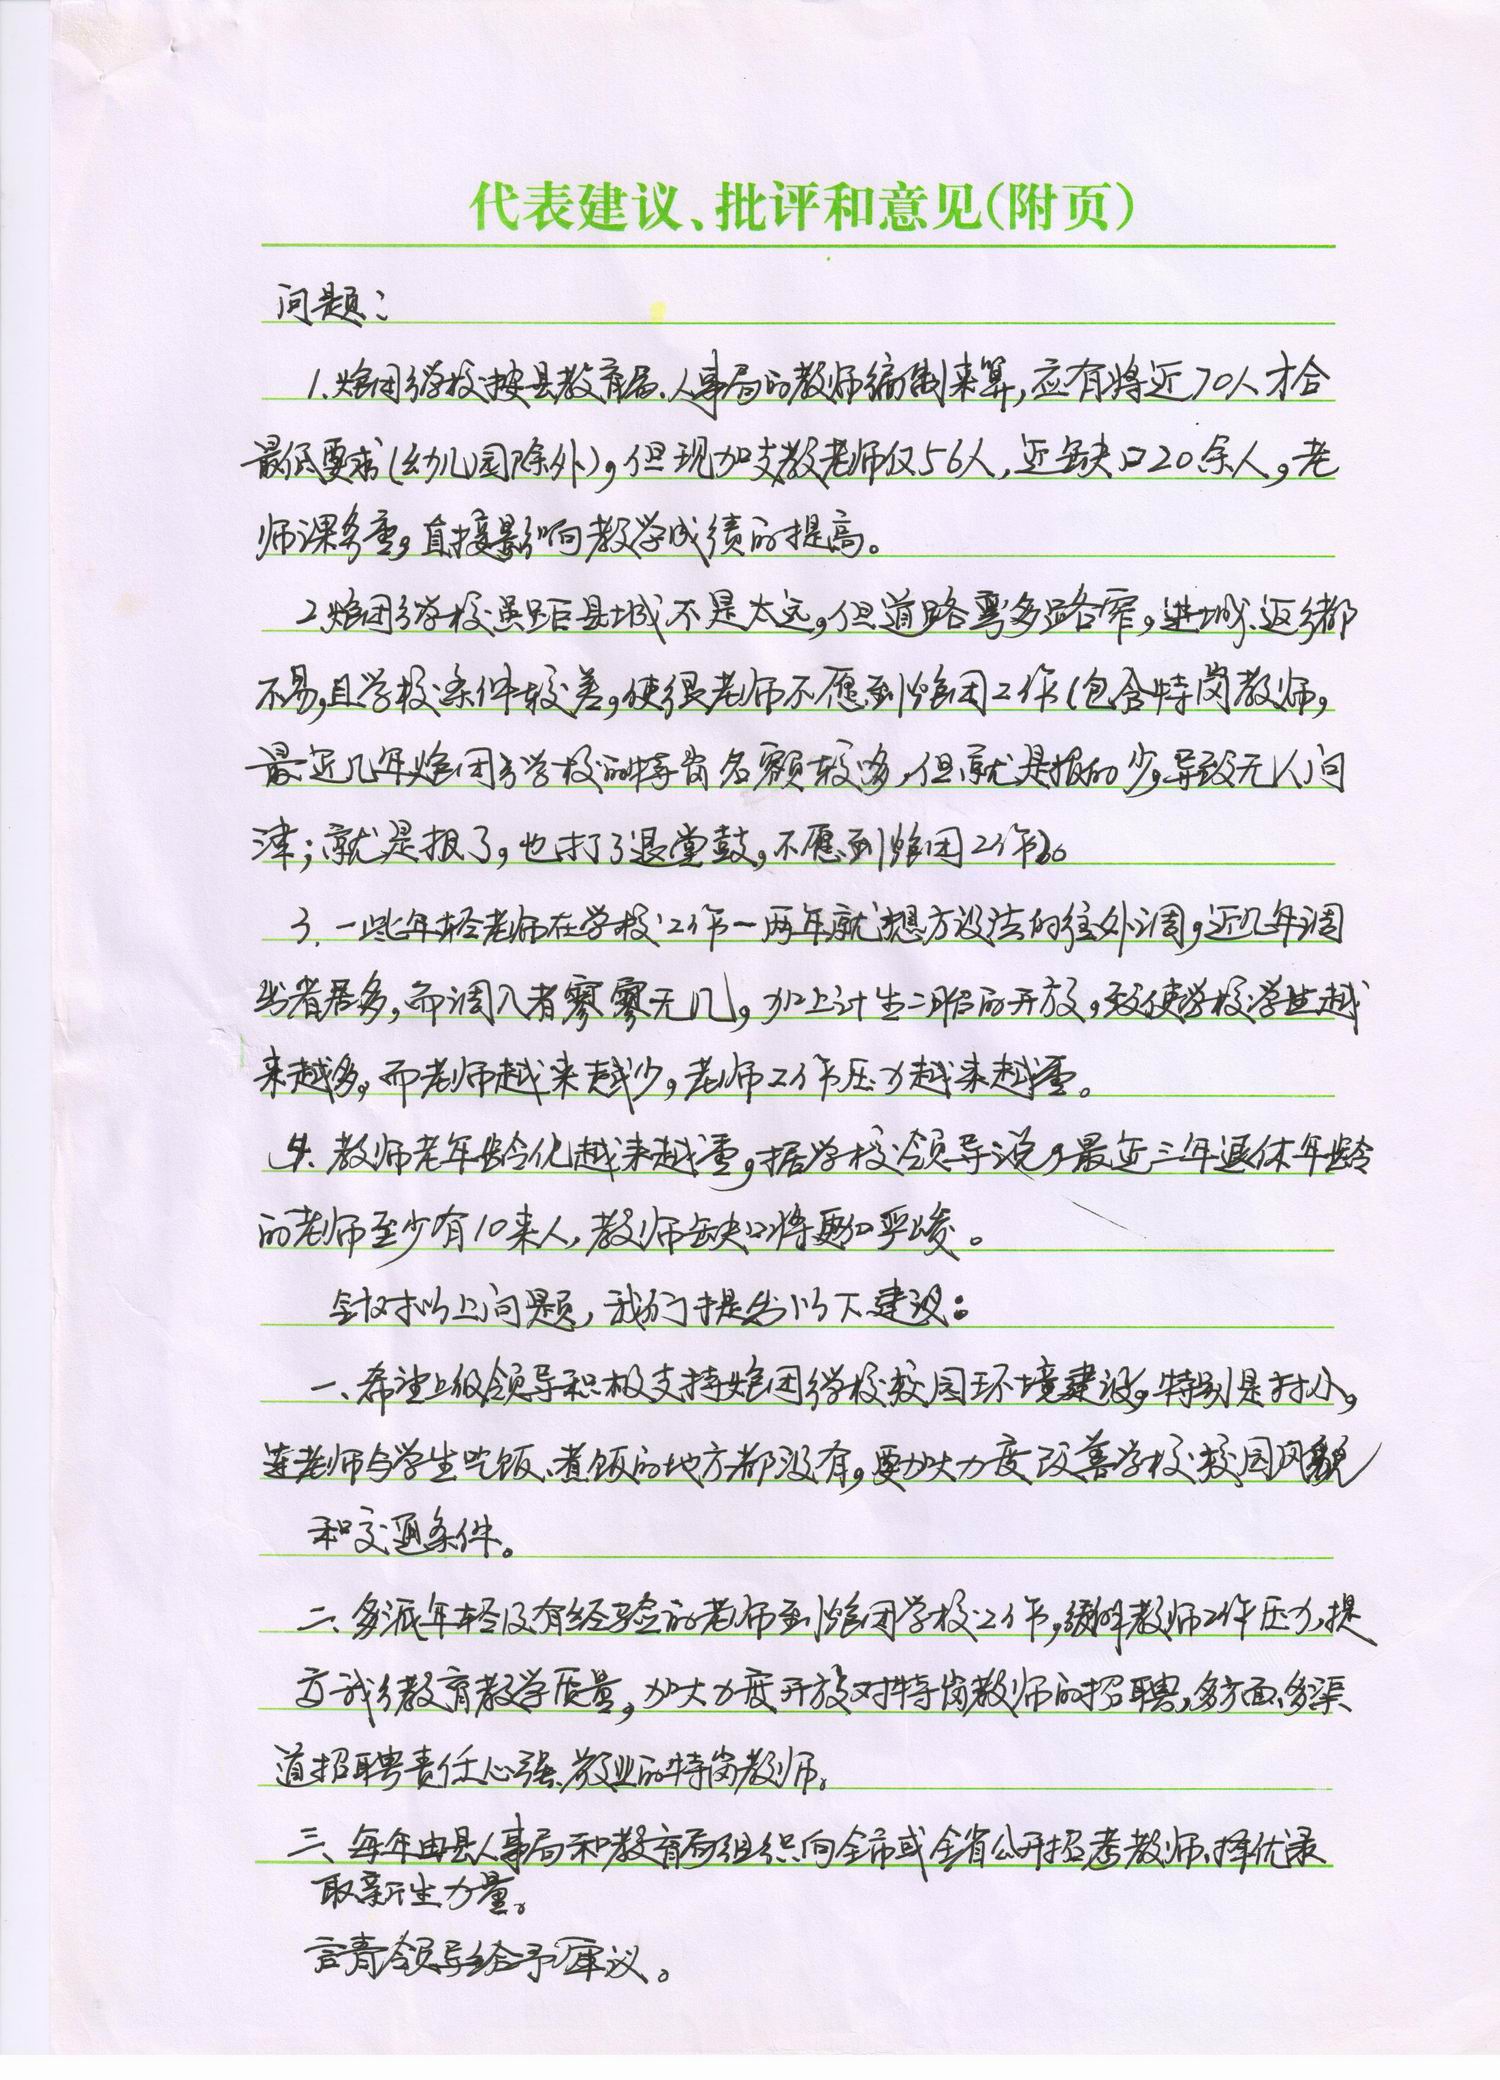 代表建议、批评和意见(附页)
问题：
1.炮团乡学校按县教育局、人事局的教师编制来算，应有将近70人才合
最低要求(幼儿园除外)，但现加支教老师仅56人，近缺口20余人，老
师课务重，直接影响教学成绩的提高。
2.炮团乡学校虽距县城不是太远，但道路弯多路窄，进城、返乡都
不易，且学校条件较差，使很老师不愿到炮团工作(包含特岗教师，
最近几年炮团乡学校的特岗名额较多，但就是报的少，导致无人问
津；就是报了，也打了退堂鼓，不愿到炮团工作)。
3.一些年轻老师在学校工作一两年就想方设法的往外调，近几年调
出者居多，而调入者寥寥无几，加上计生二胎的开放，致使学校学生越
来越多，而老师越来越少，老师工作压力越来越重。
4.教师老年龄化越来越重，据学校领导说，最近三年退休年龄
的老师至少有10来人，教师缺口将更加严峻。
针对以上问题，我们提出以下建议：
一、希望上级领导积极支持炮团乡学校校园环境建设，特别是村小，
连老师与学生吃饭、煮饭的地方都没有，要加大力度改善学校校园风貌
和交通条件。
二、多派年轻及有经验的老师到炮团学校工作，缓解教师工作压力，提
高我乡教育教学质量，加大力度开放对特岗教师的招聘，多方面、多渠
道招聘责任心强、敬业的特岗教师。
三、每年由县人事局和教育局组织向全市或全省公开招考教师、择优录
取新生力量。
请领导给予审议。